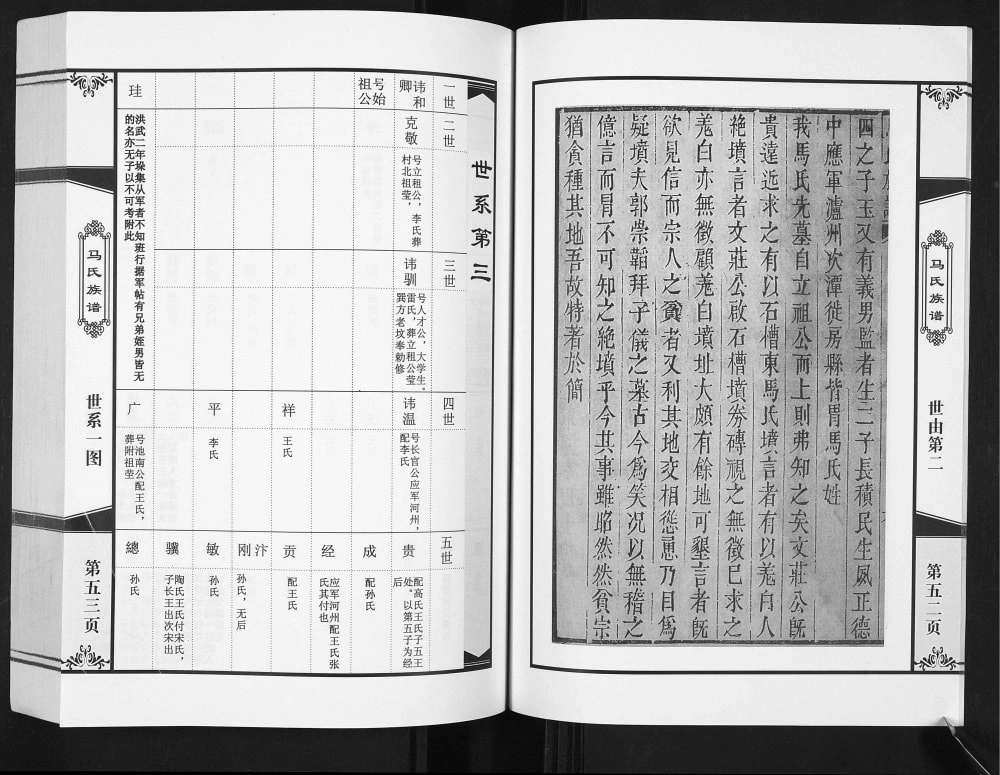 马氏族谱
世由第二
第五二页
四之子玉又有義男監者生二子長積民生凤正德
中應軍瀘州次潭徙房縣皆冒馬氏姓
我馬氏先墓自立祖公而上則弗知之矣文莊公既
貴遠近求之有以石槽東馬氏墳言者有以羗白人
絶墳言者文莊公啟石槽墳券磚視之無徵已求之
羗白亦無徵顧羗白墳址大頗有餘地可墾言者既
欲見信而宗人之貧者又利其地交相慫慂乃目爲
疑墳夫郭崇韜拜子儀之墓古今爲笑况以無稽之
億言而冒不可知之絶墳乎今其事雖昭然然貧宗
猶貪種其地吾故特著於簡
世系第三
一世
讳和卿
号始祖公
二世
克敬
号立祖公，李氏葬村北祖莹，
三世
讳驯
号人才公，大学生。雷氏，葬立祖公莹巽方老坟奉勅修
四世
讳温
号长官公应军河州，配李氏
祥
王氏
平
李氏
广
号池南公配王氏，葬附祖莹
五世
贵
配高氏王氏子五王处。以第五子为经后
成
配孙氏
经
应军河州配王氏张氏其付也
贡
配王氏
汴刚
孙氏，无后
敏
孙氏
骥
陶氏王氏付宋氏，子长王出次宋出
總
孙氏
珪
洪武二年垛集从军者不知班行据军帖有兄弟姪男皆无的名亦无子以不可考附此
马氏族谱
世系一图
第五三页